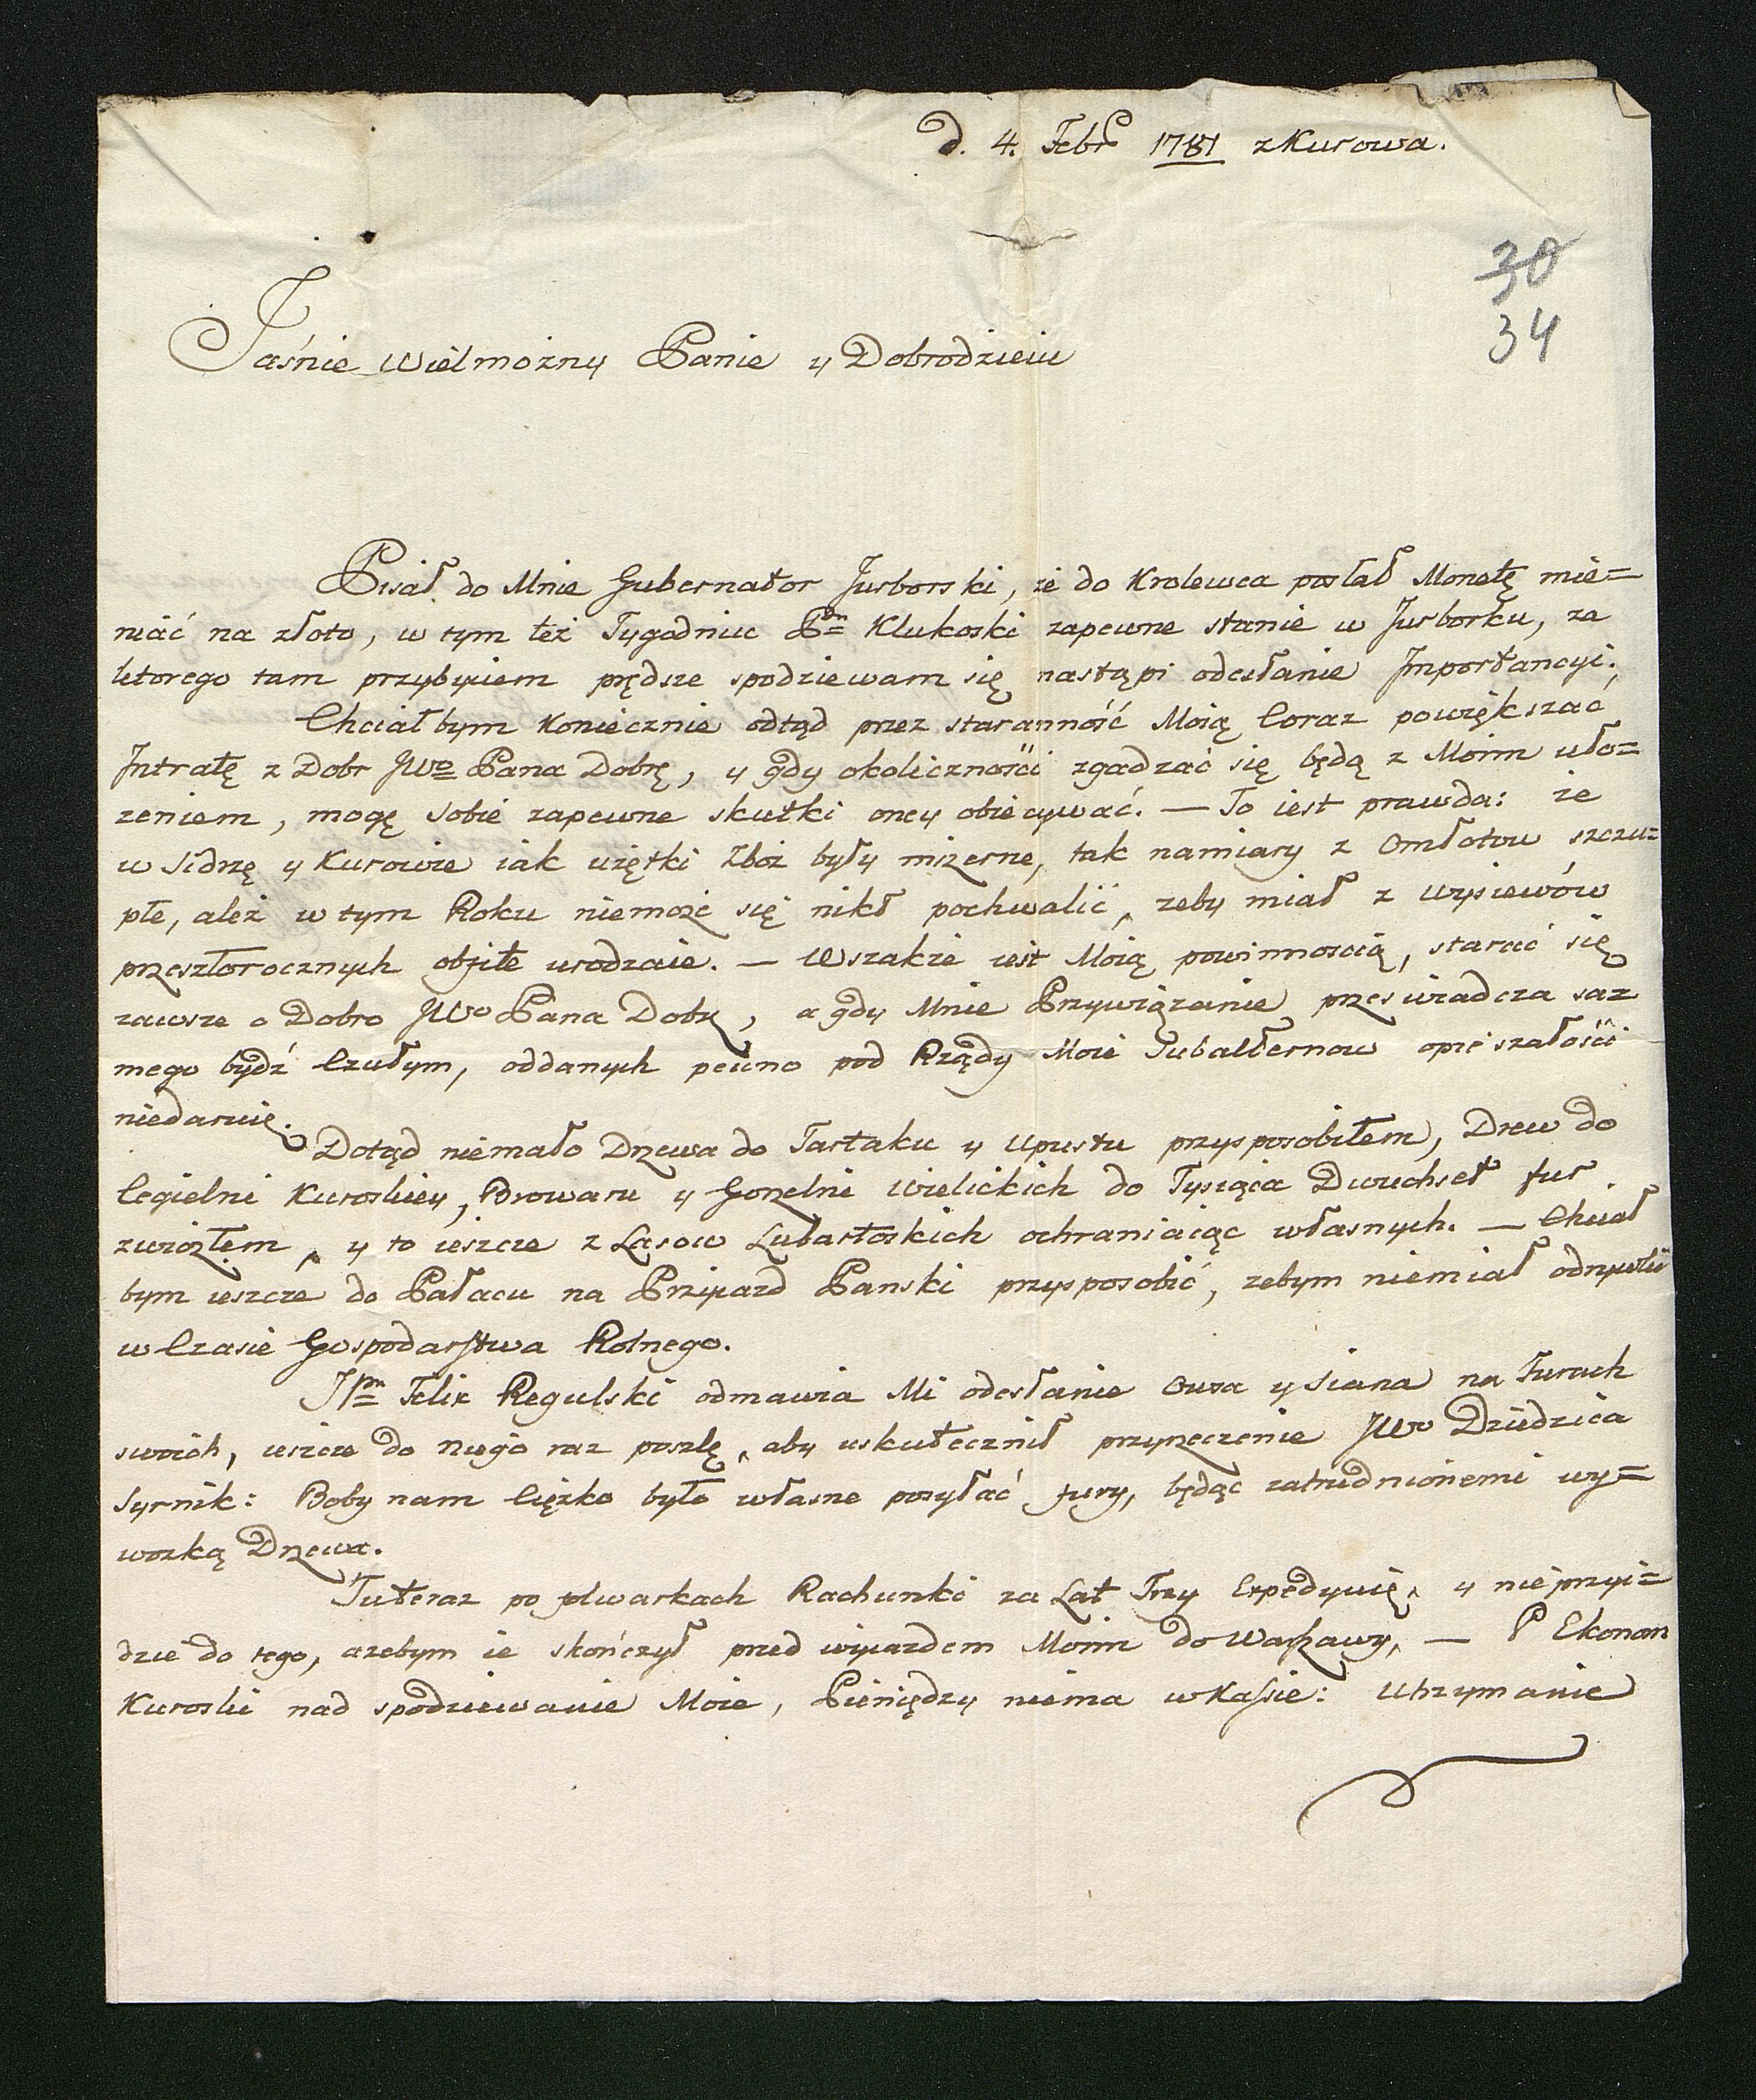 d. 4. Febr 1781 z Kurowa.
30
34
Jaśnie Wielmożny Panie y Dobrodzieiu
Pisał do Mnie Gubernator Jurborski, że do Krolewca posłał Monetę mie=
niać na złoto, w tym też Tygodniu Pn Klukoski zapewne stanie w Jurborku, za
ktorego tam przybyciem prędsze spodziewam się nastąpi odesłanie Importancyi.
Chciałbym koniecznie odtąd przez staranność Moią Coraz powiększać
Intratę z Dobr JWo Pana Dobrę, y gdy okoliczności zgadzać się będą z Moim uło=
żeniem, mogę sobie zapewne skutki oney obiecywać. — To iest prawda: że
w Sidrzę y Kurowie iak użętki Zboż były mizerne, tak namiary z Omłotow szczu=
płe, ależ w tym Roku niemoże się nikt pochwalić, zeby miał z wysiewów
przeszłorocznych obfite urodzaie. — Wszakże iest Moią powinnoscią, starać się
zawsze o Dobro JWo Pana Dobr, a gdy Mnie Przywiązanie przeswiadcza sa=
mego bydź Czułym, oddanych pewno pod Rządy Moie Subalternow opieszałości
niedaruię.
Dotąd niemało Drzewa do Tartaku y Upustu przysposobiłem, Drew do
Cegielni Kuroskiey, Browaru y Gorzelni Wielickich do Tysiąca Dwuchset fur
zwiozłem, y to ieszcze z Lasow Lubartoskich ochraniaiąc własnych. — Chciał
bym ieszcze do Pałacu na Przyiazd Panski przysposobić, zebym niemiał odrywki
w Czasie Gospodarstwa Rolnego.
JPn Felix Regulski odmawia Mi odesłanie Owsa y Siana na Furach
swoich, ieszcze do niego raz poszlę, aby uskutecznił przyrzeczenie JWo Dziedzica
Syrnik: Boby nam Ciężko było własne posyłać fury, będąc zatrudnionemi wy=
wozką Drzewa.
Tu teraz po folwarkach Rachunki za Lat Trzy Expedyuię, y nieprzyi=
dzie do tego, azebym ie skończył przed wyiazdem Moim do Warszawy, — P Ekonom
Kuroski nad spodziewanie Moie, Pieniędzy niema w Kassie: Utrzymanie